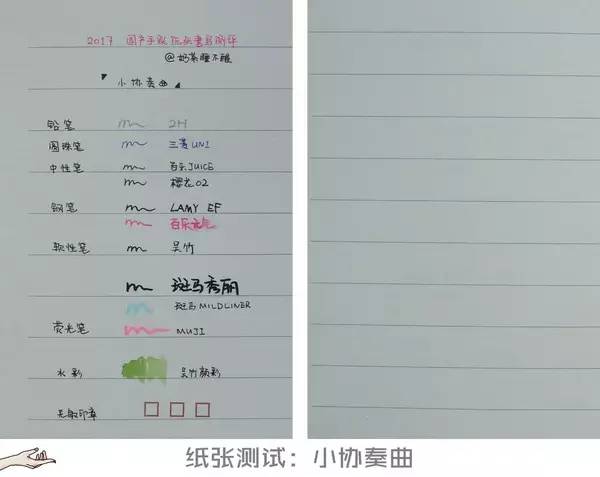 2017 国产手账纸品書写测评
@奶茶睡不醒
小协奏曲
铅笔 2H
圆珠笔 三菱UNI
中性笔 百乐JUICE
樱花02
钢笔 LAMY EF
百乐元气
软性笔 吴竹
斑马秀丽
斑马MILDLINER
荧光笔 MUJI
水彩 吴竹颜彩
无敏印章
纸张测试：小协奏曲